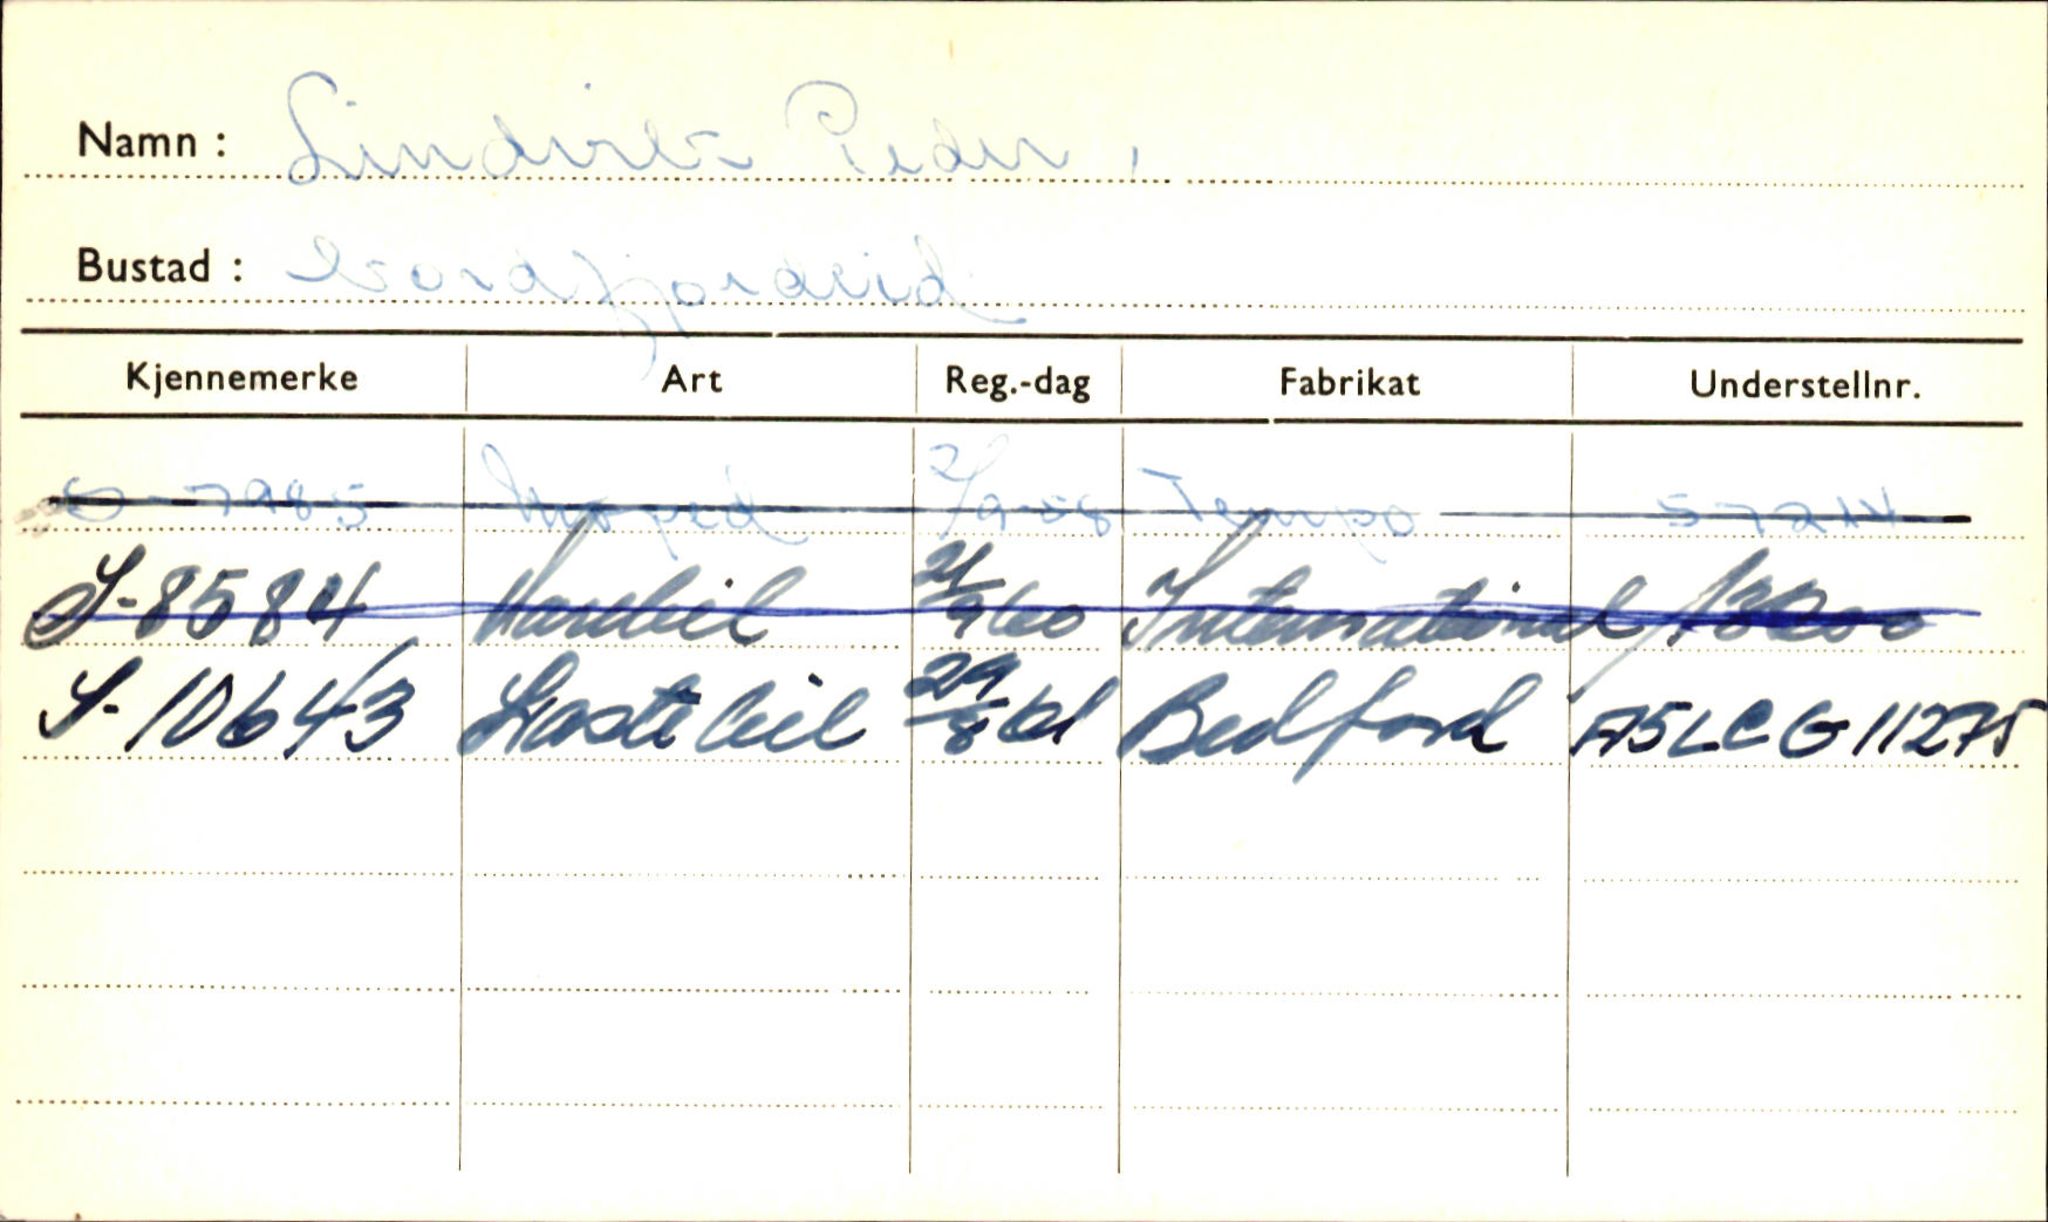 Namn : Lindvik Peder,
Bustad : Nordfjordeid
Kjennemerke Art Reg.-dag Fabrikat Understellnr.
S-7985 Moped 2/9-58 Tempo 57214
S-8584 Varebil 21/9 60 International
S-10643 Lastebil 29/8 61 Bedford A5LCG11275